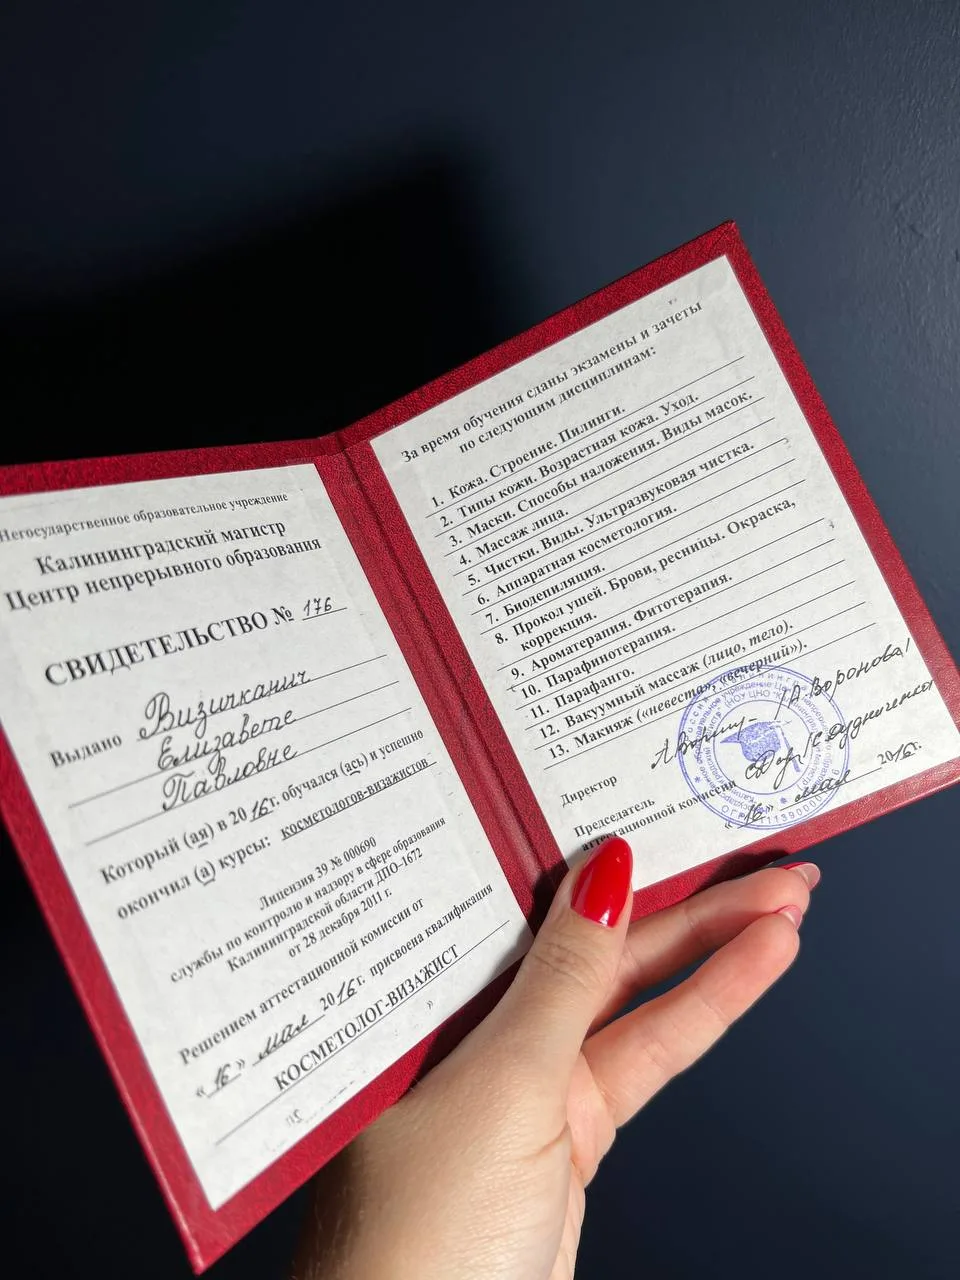 Негосударственное образовательное учреждение
Калининградский магистр
Центр непрерывного образования
СВИДЕТЕЛЬСТВО № 176
Выдано Визичканич
Елизавете
Павловне
Который (ая) в 2016 г. обучался (ась) и успешно
окончил (а) курсы: косметологов-визажистов
Лицензия 39 № 000690
службы по контролю и надзору в сфере образования
Калининградской области ДПО-1672
от 28 декабря 2011 г.
Решением аттестационной комиссии от
«16» мая 2016 г. присвоена квалификация
КОСМЕТОЛОГ-ВИЗАЖИСТ
За время обучения сданы экзамены и зачеты
по следующим дисциплинам:
1. Кожа. Строение. Пилинги.
2. Типы кожи. Возрастная кожа. Уход.
3. Маски. Способы наложения. Виды масок.
4. Массаж лица.
5. Чистки. Виды. Ультразвуковая чистка.
6. Аппаратная косметология.
7. Биодепиляция.
8. Прокол ушей. Брови, ресницы. Окраска,
коррекция.
9. Ароматерапия. Фитотерапия.
10. Парафинотерапия.
11. Парафанго.
12. Вакуумный массаж (лицо, тело).
13. Макияж («невеста», «вечерний»).
Директор /А. Воронова/
Председатель
аттестационной комиссии
«16» мая 2016 г.